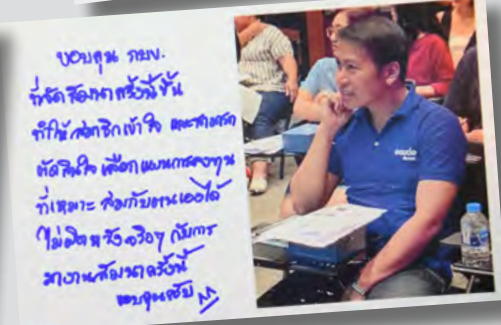 ขอบคุณ กบข.
ที่จัดสัมมนาครั้งนี้ขึ้น
ทำให้สมาชิกเข้าใจ และสามารถ
ตัดสินใจ เลือกแผนการลงทุน
ที่เหมาะสมกับตนเองได้
ไม่ผิดหวังจริงๆ กับการ
มางานสัมมนาครั้งนี้
ขอบคุณครับ